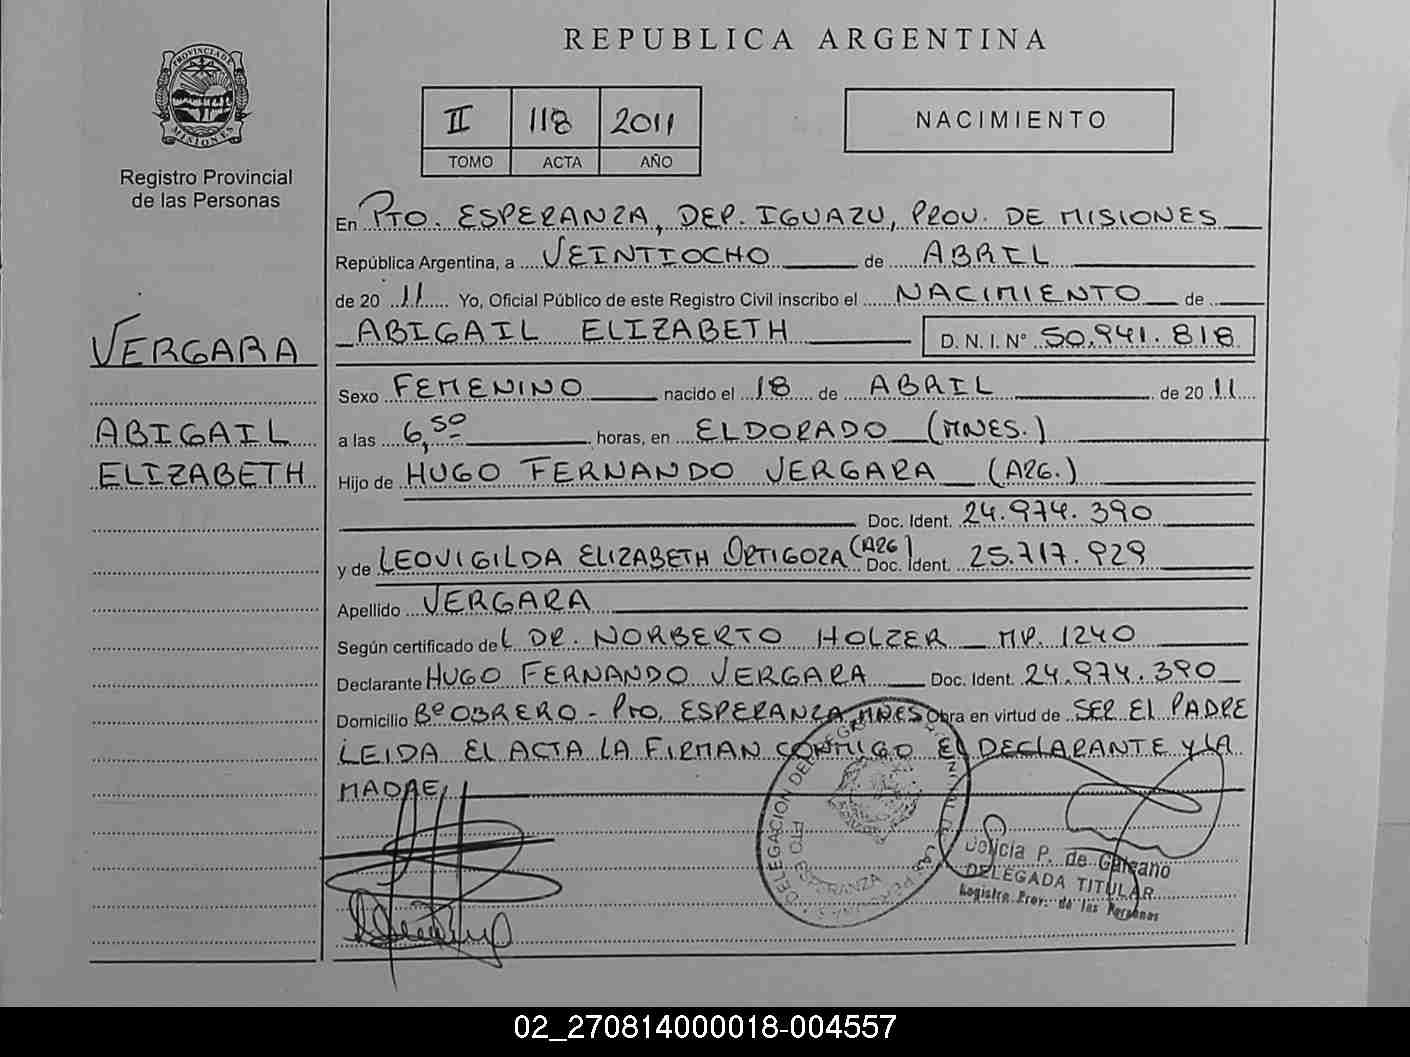 REPUBLICA ARGENTINA
PROVINCIA DE MISIONES
Registro Provincial
de las Personas
II 118 2011
TOMO ACTA AÑO
NACIMIENTO
En PTO. ESPERANZA, DEP. IGUAZU, PROV. DE MISIONES
República Argentina, a VEINTIOCHO de ABRIL
de 20 11 Yo, Oficial Público de este Registro Civil inscribo el NACIMIENTO de
ABIGAIL ELIZABETH D. N. I. N° 50.941.818
VERGARA
ABIGAIL
ELIZABETH
Sexo FEMENINO nacido el 18 de ABRIL de 20 11
a las 6,50 horas, en ELDORADO (MNES.)
Hijo de HUGO FERNANDO VERGARA (ARG.)
Doc. Ident. 24.974.390
y de LEOVIGILDA ELIZABETH ORTIGOZA (ARG) Doc. Ident. 25.717.929
Apellido VERGARA
Según certificado del DR. NORBERTO HOLZER MP. 1240
Declarante HUGO FERNANDO VERGARA Doc. Ident. 24.974.390
Domicilio Bº OBRERO - PTO. ESPERANZA, MNES Obra en virtud de SER EL PADRE
LEIDA EL ACTA LA FIRMAN CONMIGO EL DECLARANTE Y LA
MADRE
DELEGACION
PTO. ESPERANZA
P. de Galeano
DELEGADA TITULAR
Registro Prov. de las Personas
02_270814000018-004557